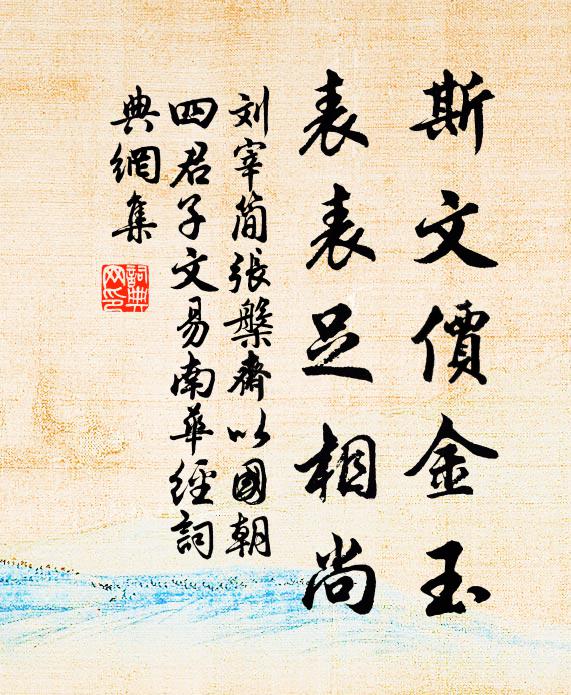 斯文價金玉
表表足相尚
刘宰簡張槃齋以國朝
四君子文易南華經詞
典網集
詞典网印